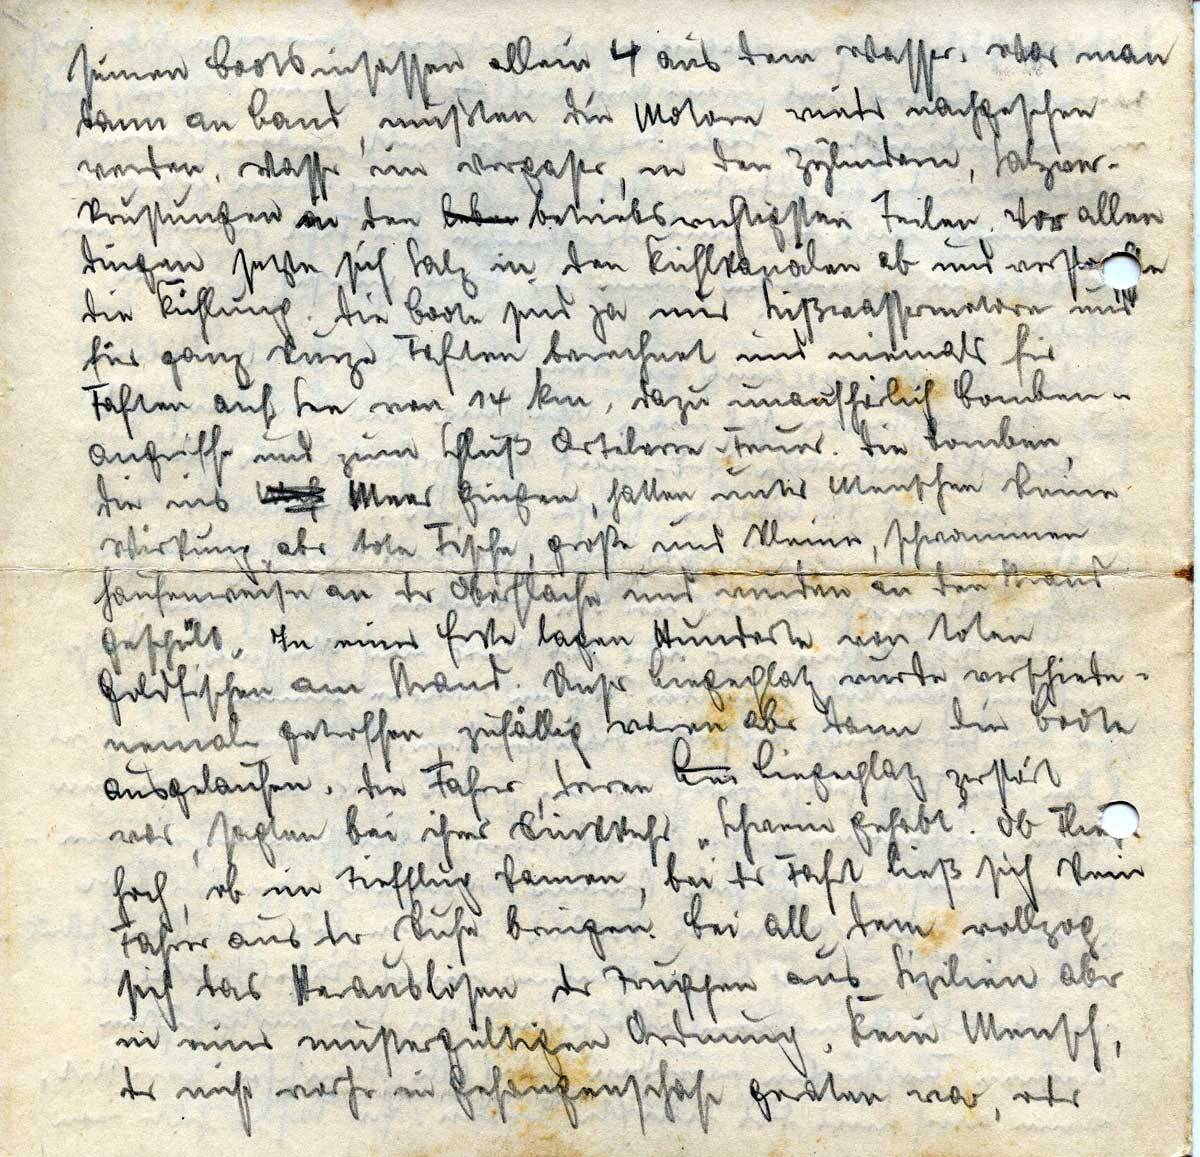 seinen Bootsinsassen allein 4 aus dem Wasser. War man
dann an Land, mußten die Motore wieder nachgesehen
werden. Wasser im Vergaser, in den Zylindern, Salzver-
krustungen in den betriebswichtigsten Teilen. Vor allen
Dingen setzte sich Salz in den Kühlkanälen ab und
die Kühlung. Die Boote sind ja nur Süßwassermotore und
für ganz kurze Fahrten berechnet und niemals für
Fahrten auf See von 14 km, dazu unaufhörlich Bomben-
angriffe und zum Schluß Artelerie-Feuer. Die Bomben,
die ins Meer gingen, hatten unter Menschen keine
Wirkung, aber tote Fische, große und kleine, schwammen
haufenweise an der Oberfläche und wurden an den Strand
gespült. In einer Ecke lagen Hunderte von toten
Goldfischen am Strand. Unser Liegeplatz wurde verschiede-
nemale getroffen, zufällig waren aber dann die Boote
ausgelaufen. Die Fahrer, deren Liegeplatz zerstört
war, sagten bei ihrer Rückkehr „Schwein gehabt". Ob
hoch, ob im Tiefflug kamen, bei der Fahrt ließ sich kein
Fahrer aus der Ruhe bringen. Bei all dem vollzog
sich das Herauslösen der Truppen aus Sizilien aber
in einer mustergültigen Ordnung. Kein Mensch,
der nicht vorher in Gefangenschaft geraten war, oder